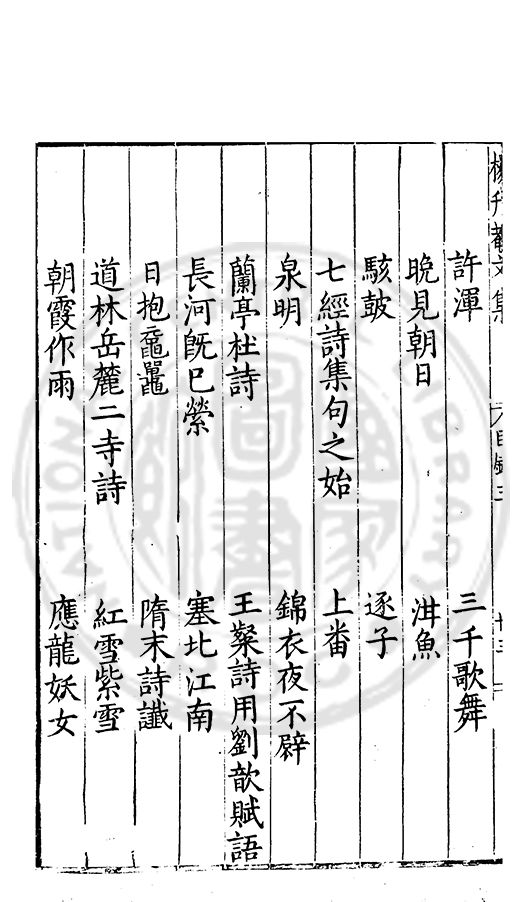 許渾 三千歌舞
晩見朝日 渳魚
駭鼓 逐子
七經詩集句之始 上番
泉明 錦衣夜不襞
蘭亭杜詩 王粲詩用劉歆賦語
長河旣巳縈 塞北江南
日抱黿鼉 隋末詩讖
道林岳麓二寺詩 紅雪紫雪
朝霞作雨 應龍妖女